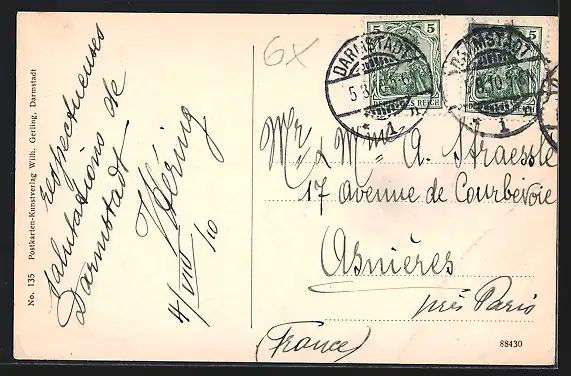 6x
respectueuses
salutations de
Darmstadt
Häring
4/VIII/10
No. 135 Postkarten-Kunstverlag Wilh. Gerling, Darmstadt
5
5
DARMSTADT
DARMSTADT
DEUTSCHES REICH
REICH
* 1 n
* 1 n
Mr & Me A. Straessle
17 avenue de Courbevoie
Asnières
près Paris
(France)
88430